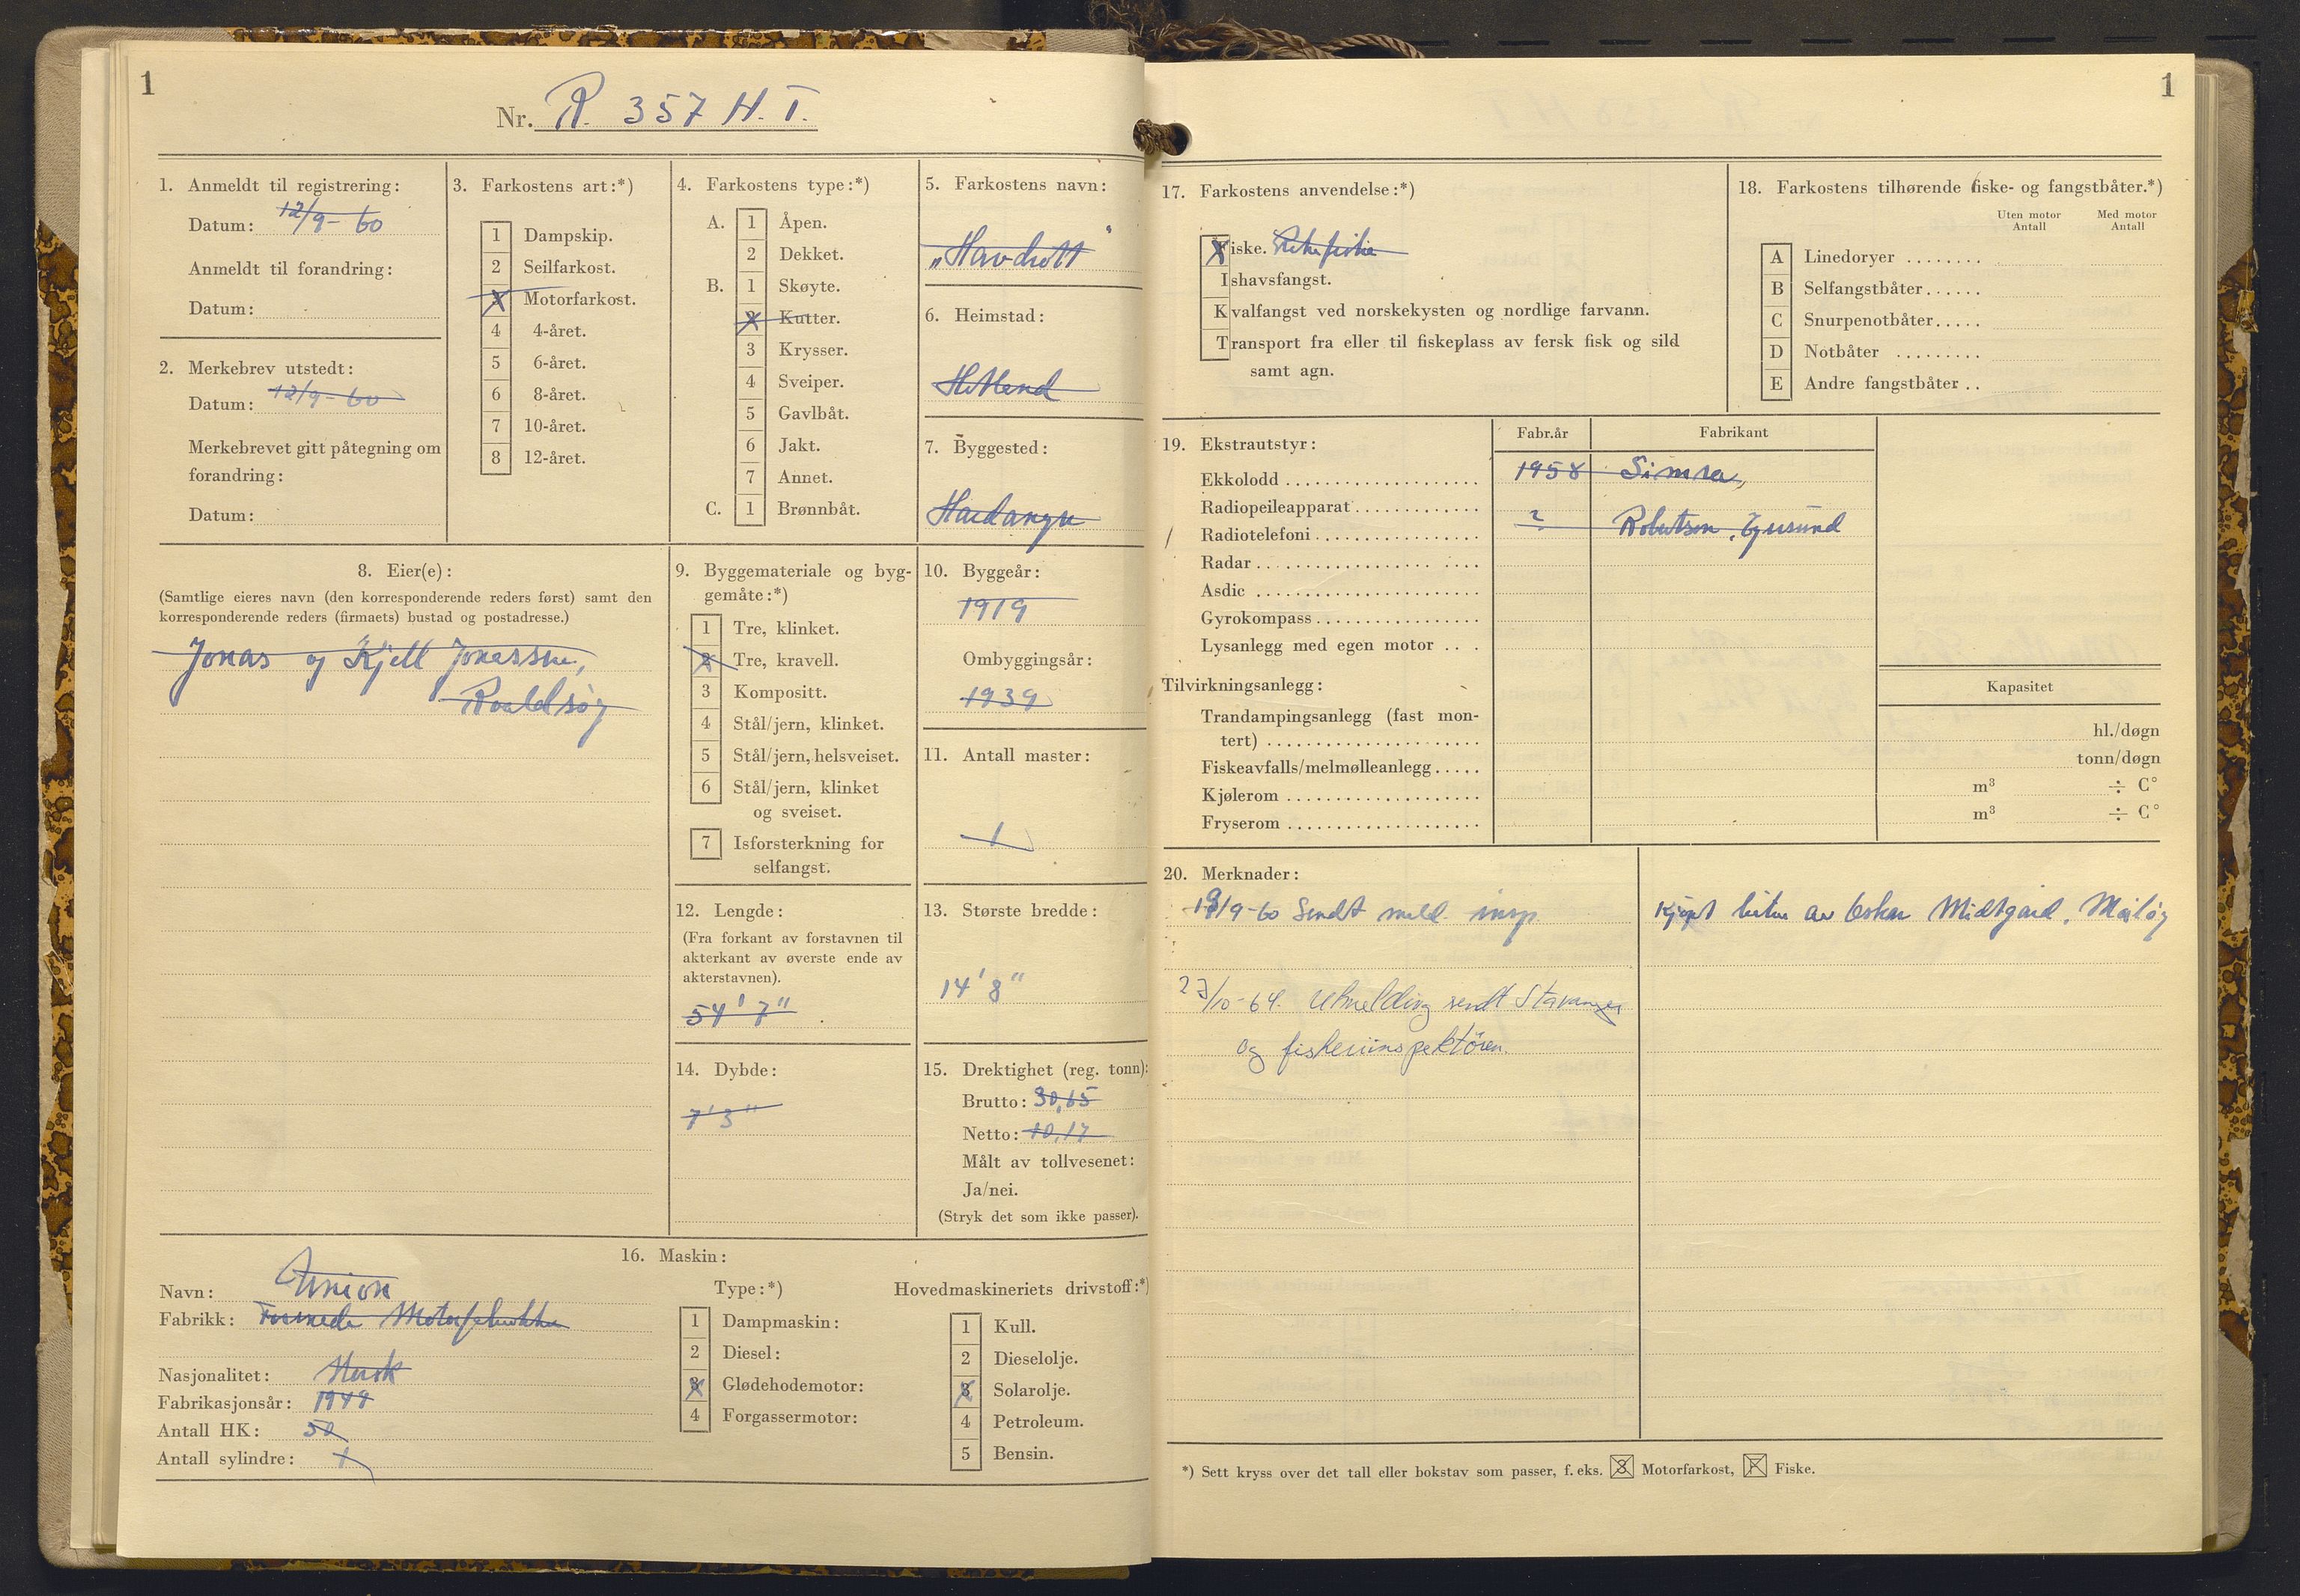 1
Nr. R. 357 H. T.
1. Anmeldt til registrering:
Datum: 12/9-60
Anmeldt til forandring:
Datum:
2. Merkebrev utstedt:
Datum: 12/9-60
Merkebrevet gitt påtegning om
forandring:
Datum:
3. Farkostens art:*)
1 Dampskip.
2 Seilfarkost.
X Motorfarkost.
4 4-året.
5 6-året.
6 8-året.
7 10-året.
8 12-året.
4. Farkostens type:*)
A. 1 Åpen.
2 Dekket.
B. 1 Skøyte.
2 Kutter.
3 Krysser.
4 Sveiper.
5 Gavlbåt.
6 Jakt.
7 Annet.
C. 1 Brønnbåt.
5. Farkostens navn:
"Havdrott"
6. Heimstad:
Hetland
7. Byggested:
Hardanger
8. Eier(e):
(Samtlige eieres navn (den korresponderende reders først) samt den
korresponderende reders (firmaets) bustad og postadresse.)
Jonas og Kjell Jonassen,
Roaldsøy
9. Byggemateriale og byg-
gemåte:*)
1 Tre, klinket.
2 Tre, kravell.
3 Kompositt.
4 Stål/jern, klinket.
5 Stål/jern, helsveiset.
6 Stål/jern, klinket
og sveiset.
7 Isforsterkning for
selfangst.
10. Byggeår:
1919
Ombyggingsår:
1939
11. Antall master:
1
12. Lengde:
(Fra forkant av forstavnen til
akterkant av øverste ende av
akterstavnen).
54' 7"
13. Største bredde:
14' 8"
14. Dybde:
7' 3"
15. Drektighet (reg. tonn):
Brutto: 30,65
Netto: 10,17
Målt av tollvesenet:
Ja/nei.
(Stryk det som ikke passer).
16. Maskin:
Navn: Union
Fabrikk: Motorfabrikker
Nasjonalitet: Norsk
Fabrikasjonsår: 1949
Antall HK: 50
Antall sylindre: 1
Type:*)
1 Dampmaskin:
2 Diesel:
3 Glødehodemotor:
4 Forgassermotor:
Hovedmaskineriets drivstoff:*)
1 Kull.
2 Dieselolje.
3 Solarolje.
4 Petroleum.
5 Bensin.
1
17. Farkostens anvendelse:*)
Fiske. Rekefiske
Ishavsfangst.
Kvalfangst ved norskekysten og nordlige farvann.
Transport fra eller til fiskeplass av fersk fisk og sild
samt agn.
18. Farkostens tilhørende fiske- og fangstbåter.*)
Uten motor Med motor
Antall Antall
A Linedoryer ........
B Selfangstbåter......
C Snurpenotbåter.....
D Notbåter .........
E Andre fangstbåter ..
19. Ekstrautstyr: Fabr.år Fabrikant
Ekkolodd 1958 Simra
Radiopeileapparat
Radiotelefoni ? Robertson, Egersund
Radar
Asdic
Gyrokompass
Lysanlegg med egen motor ...
Tilvirkningsanlegg: Kapasitet
Trandampingsanlegg (fast mon-
tert) hl./døgn
Fiskeavfalls/melmølleanlegg..... tonn/døgn
Kjølerom m³ ÷ C°
Fryserom m³ ÷ C°
20. Merknader:
13/9-60 Sendt meld. insp.
27/10-64. Utmelding sendt Stavanger
og fiskeriinspektøren.
Kjøpt hitn av Oskar Midtgård, Måløy
*) Sett kryss over det tall eller bokstav som passer, f. eks. 3 Motorfarkost, F Fiske.